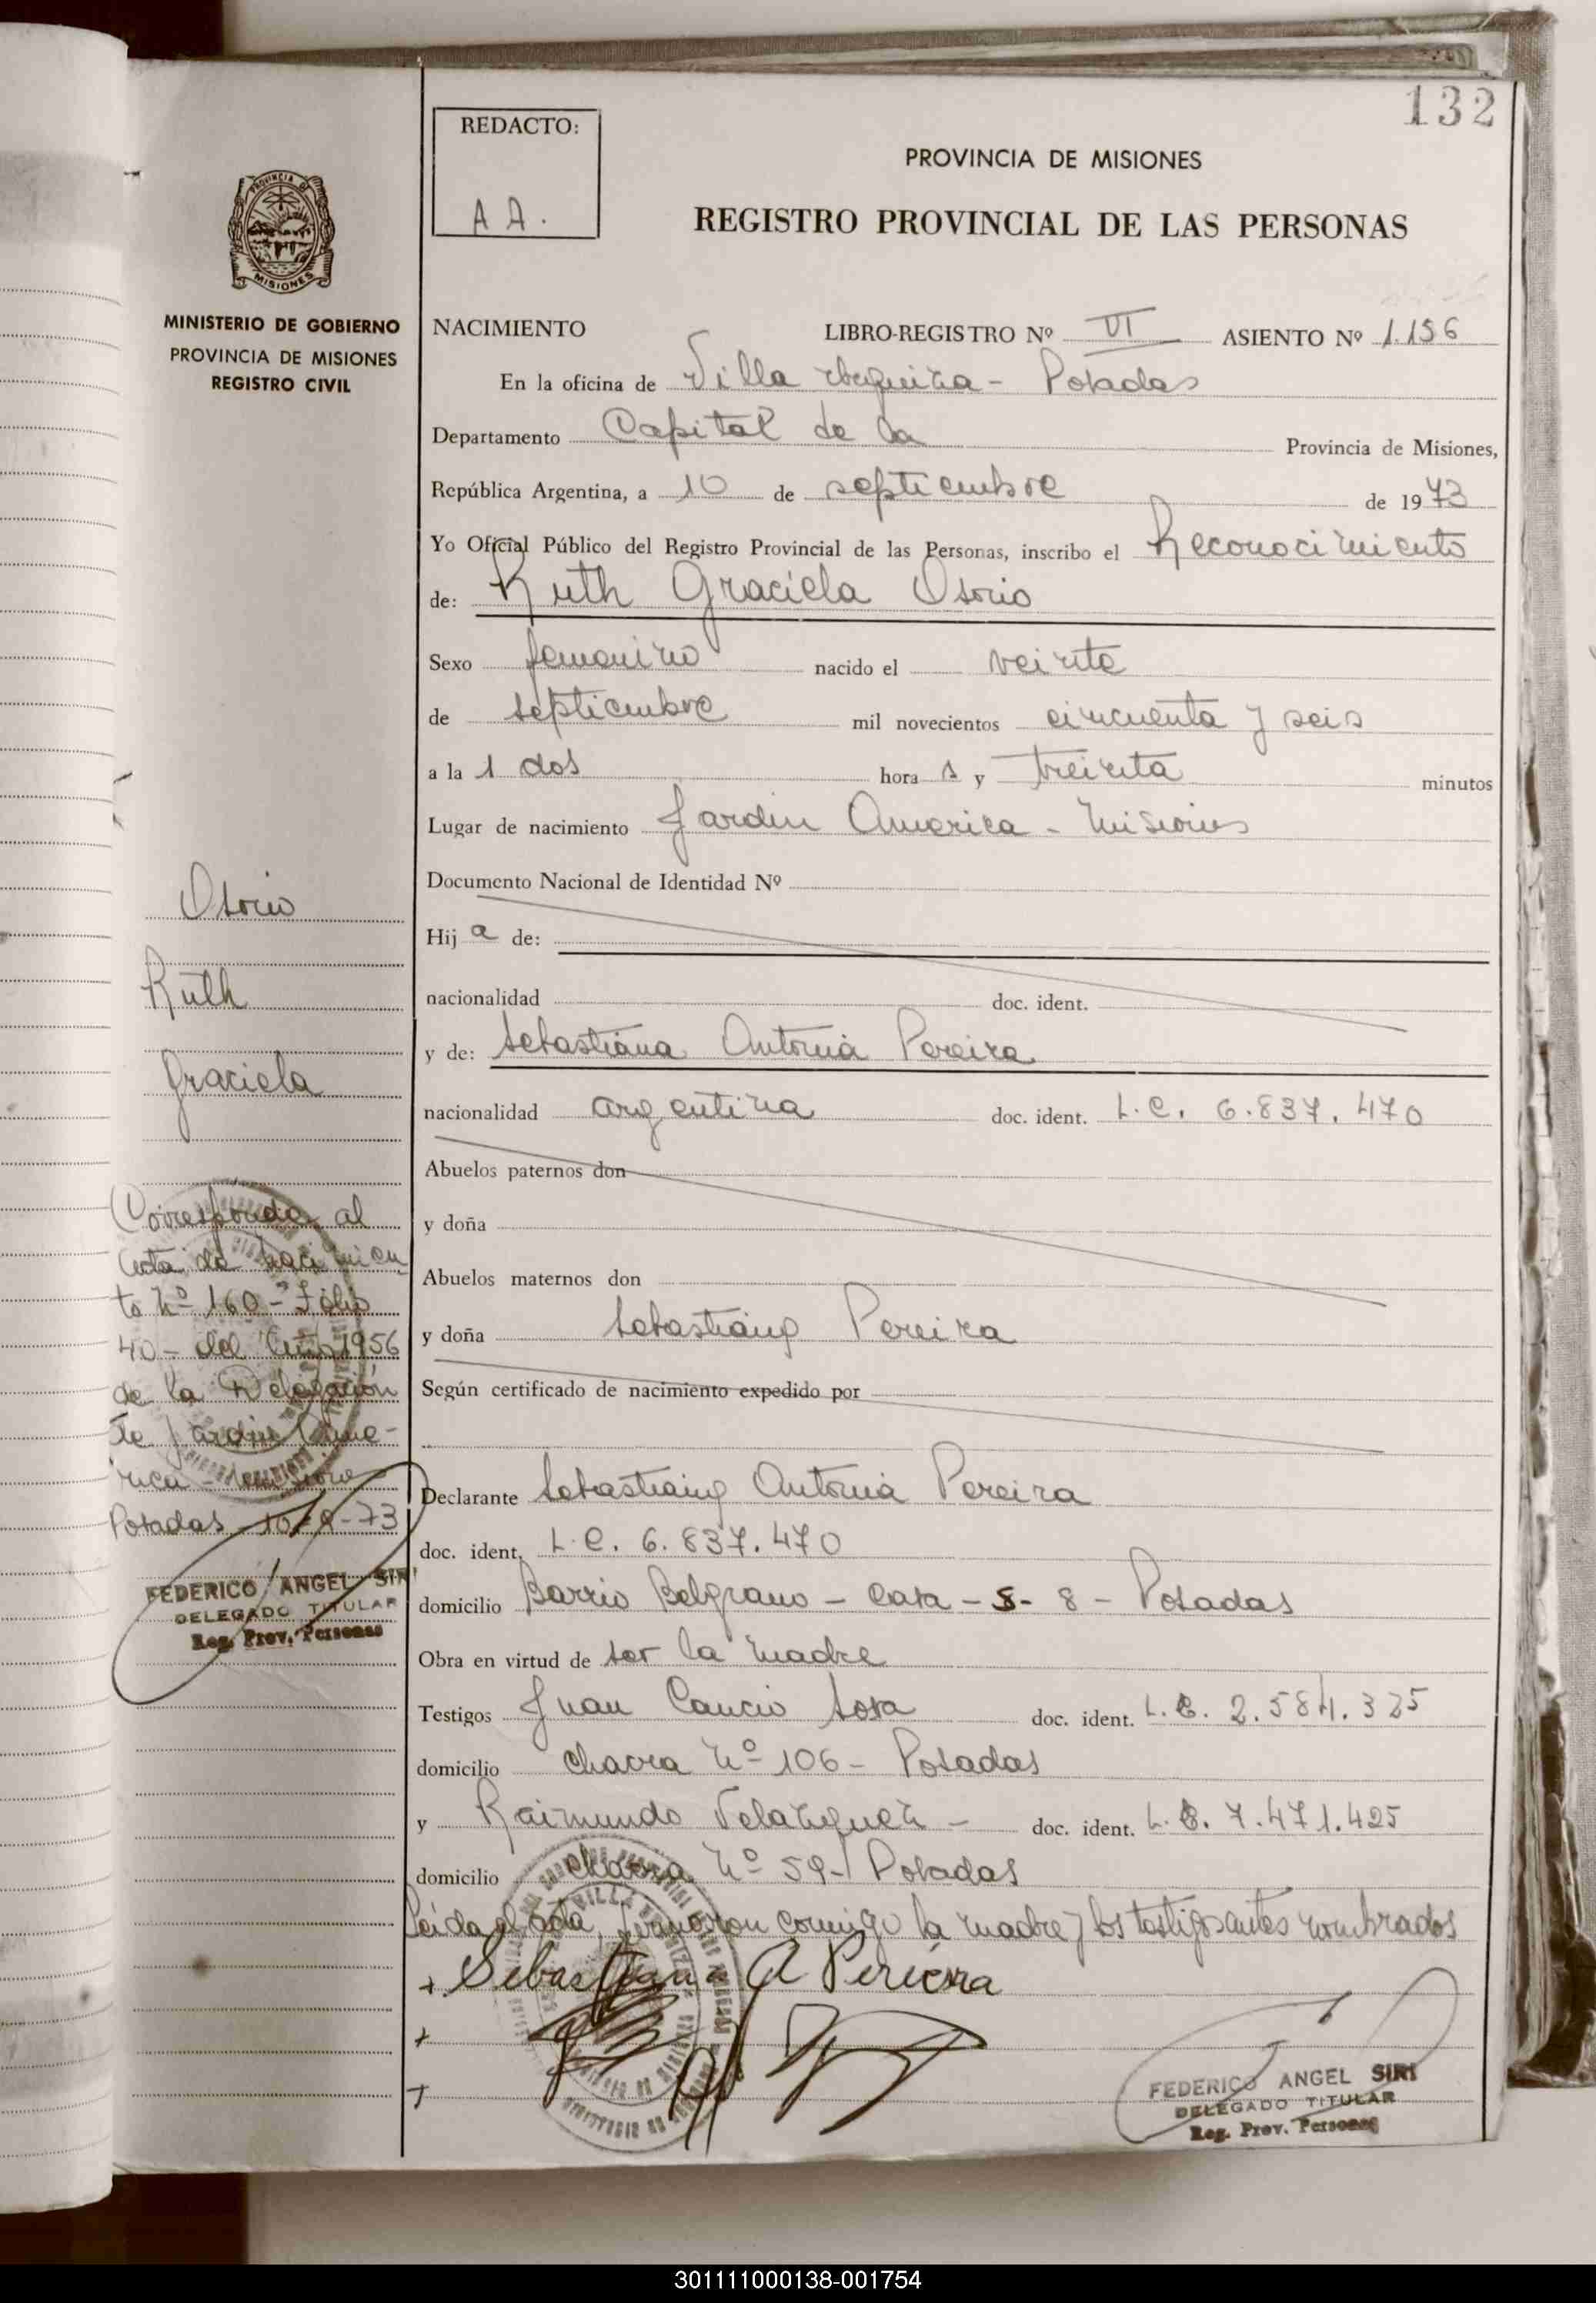 132
REDACTO:
A A.
PROVINCIA DE MISIONES
REGISTRO PROVINCIAL DE LAS PERSONAS
MINISTERIO DE GOBIERNO
PROVINCIA DE MISIONES
REGISTRO CIVIL
NACIMIENTO LIBRO-REGISTRO Nº VI ASIENTO Nº 1.156
En la oficina de Villa - Posadas
Departamento Capital de la Provincia de Misiones,
República Argentina, a 10 de septiembre de 1973
Yo Oficial Público del Registro Provincial de las Personas, inscribo el Reconocimiento
de: Ruth Graciela Osorio
Sexo femenino nacido el veinte
de septiembre mil novecientos cincuenta y seis
a la s dos hora s y treinta minutos
Lugar de nacimiento Jardin America - Misiones
Documento Nacional de Identidad Nº
Hij a de:
nacionalidad doc. ident.
y de: Sebastiana Antonia Pereira
nacionalidad argentina doc. ident. L.C. 6.837.470
Abuelos paternos don
y doña
Abuelos maternos don
y doña Sebastiana Pereira
Según certificado de nacimiento expedido por
Declarante Sebastiana Antonia Pereira
doc. ident. L.C. 6.837.470
domicilio Barrio Belgrano - Casa - S- 8 - Posadas
Obra en virtud de ser la madre
Testigos Juan Cancio Sosa doc. ident. L.E. 2.584.325
domicilio chacra Nº 106 - Posadas
y Raimundo Velazquez - doc. ident. L.E. 7.471.425
domicilio chacra Nº 59 - Posadas
Leida el acta, firmaron conmigo la madre y los testigos antes nombrados
+ Sebastiana A Periera
+
+
FEDERICO ANGEL SIRI
DELEGADO TITULAR
Reg. Prov. Personas
Osorio
Ruth
Graciela
Corresponde al
acta de nacimien
to Nº 160 - Folio
40 - del año 1956
de la Delegación
de Jardin Ame-
rica - Misiones
Posadas 10-9-73
FEDERICO ANGEL SIRI
DELEGADO TITULAR
Reg. Prov. Personas
PROVINCIA D
MISIONES
301111000138-001754